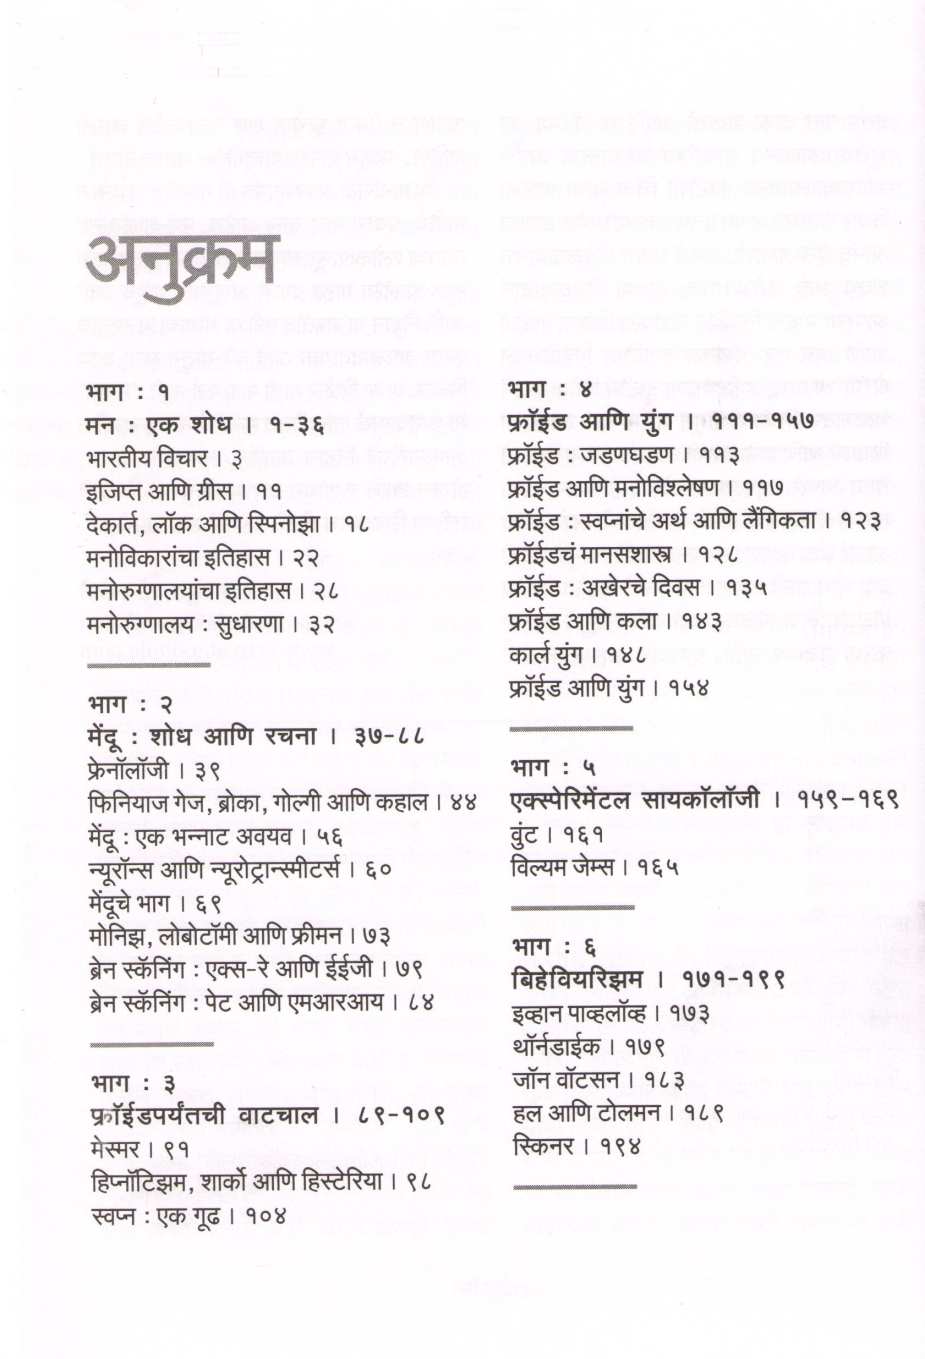 अनुक्रम
भाग : १
मन : एक शोध । १-३६
भारतीय विचार । ३
इजिप्त आणि ग्रीस । ११
देकार्त, लॉक आणि स्पिनोझा । १८
मनोविकारांचा इतिहास । २२
मनोरुग्णालयांचा इतिहास । २८
मनोरुग्णालय : सुधारणा । ३२
भाग : २
मेंदू : शोध आणि रचना । ३७-८८
फ्रेनॉलॉजी । ३९
फिनियाज गेज, ब्रोका, गोल्गी आणि कहाल । ४४
मेंदू : एक भन्नाट अवयव । ५६
न्यूरॉन्स आणि न्यूरोट्रान्स्मीटर्स । ६०
मेंदूचे भाग । ६९
मोनिझ, लोबोटॉमी आणि फ्रीमन । ७३
ब्रेन स्कॅनिंग : एक्स-रे आणि ईईजी । ७९
ब्रेन स्कॅनिंग : पेट आणि एमआरआय । ८४
भाग : ३
फ्रॉईडपर्यंतची वाटचाल । ८९-१०९
मेस्मर । ९१
हिप्नॉटिझम, शार्को आणि हिस्टेरिया । ९८
स्वप्न : एक गूढ । १०४
भाग : ४
फ्रॉईड आणि युंग । १११-१५७
फ्रॉईड : जडणघडण । ११३
फ्रॉईड आणि मनोविश्लेषण । ११७
फ्रॉईड : स्वप्नांचे अर्थ आणि लैंगिकता । १२३
फ्रॉईडचं मानसशास्त्र । १२८
फ्रॉईड : अखेरचे दिवस । १३५
फ्रॉईड आणि कला । १४३
कार्ल युंग । १४८
फ्रॉईड आणि युंग । १५४
भाग : ५
एक्स्पेरिमेंटल सायकॉलॉजी । १५९-१६९
वुंट । १६१
विल्यम जेम्स । १६५
भाग : ६
बिहेवियरिझम । १७१-१९९
इव्हान पाव्हलॉव्ह । १७३
थॉर्नडाईक । १७९
जॉन वॉटसन । १८३
हल आणि टोलमन । १८९
स्किनर । १९४